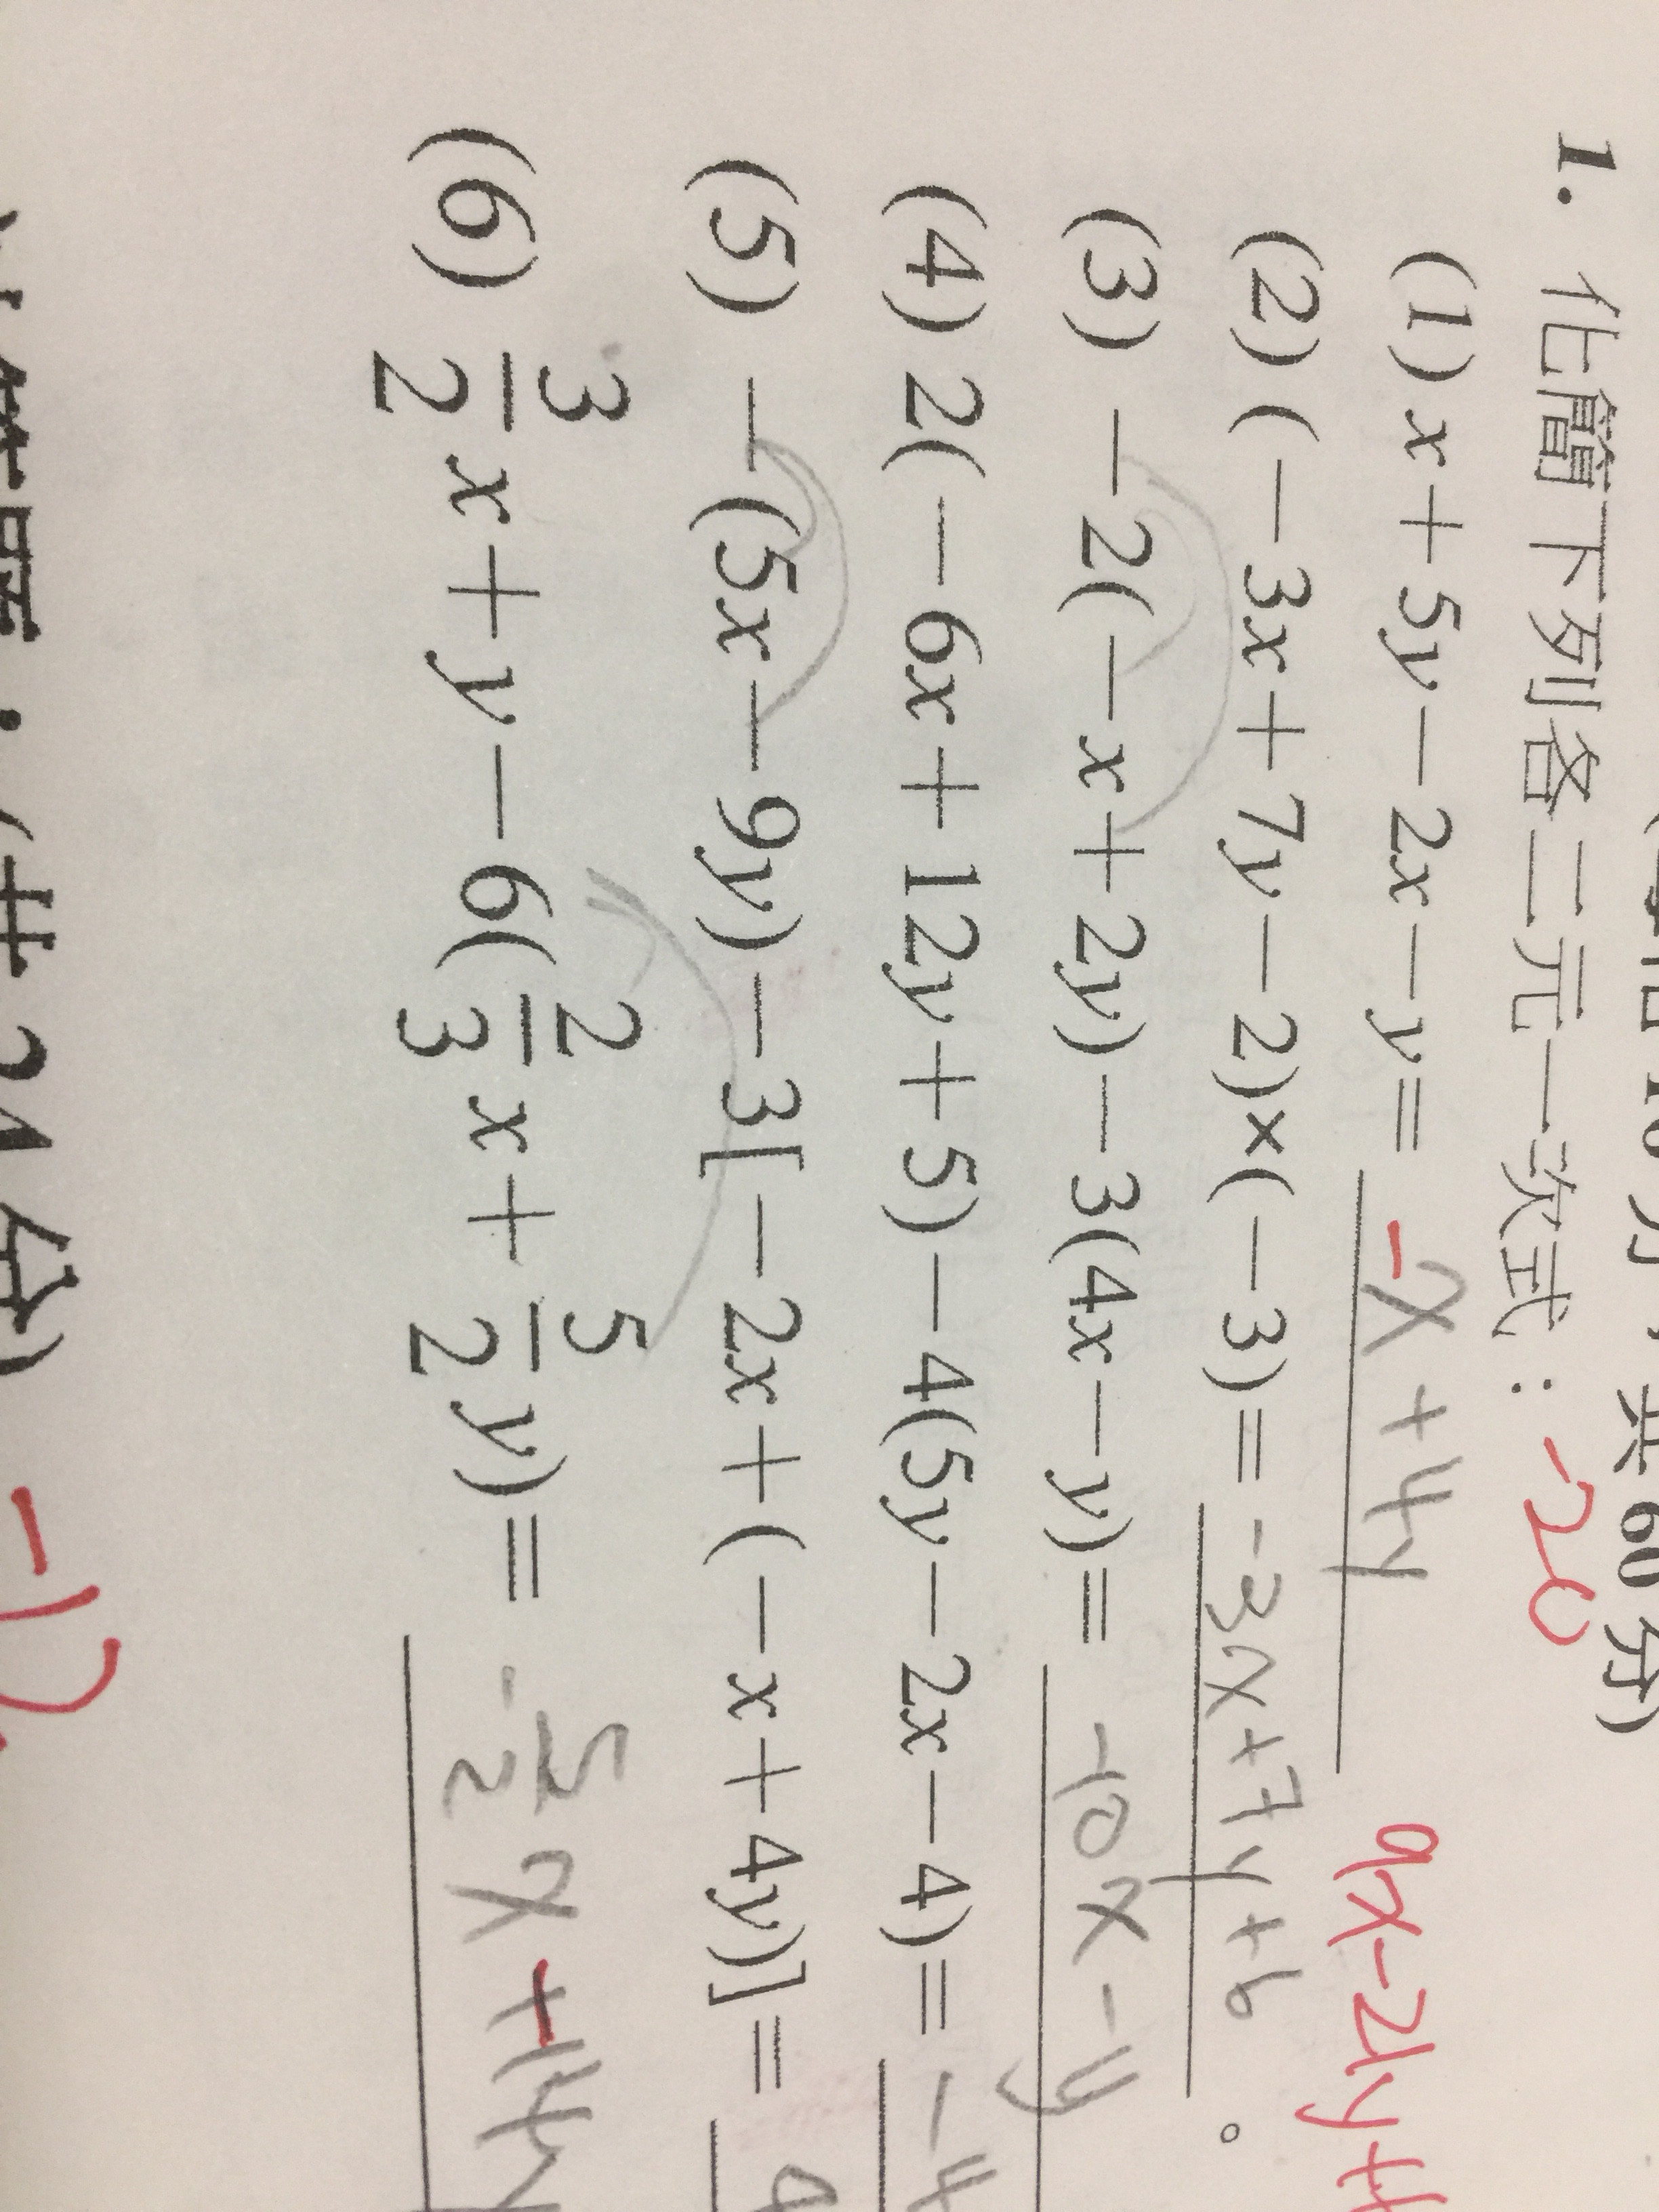 分，共 60 分)
1. 化簡下列各二元一次式：-20
(1) x + 5y − 2x − y = -x + 4y
9x - 21y +
(2) ( − 3x + 7y − 2)×( − 3) = -3x + 7y + 6 。
(3) − 2( − x + 2y) − 3(4x − y) = -10x - y
(4) 2( − 6x + 12y + 5) − 4(5y − 2x − 4) = -4
(5) − (5x − 9y) − 3[ − 2x + ( − x + 4y)] = 4
(6) 3/2 x + y − 6( 2/3 x + 5/2 y) = - 5/2 x
(共 24 分) -12